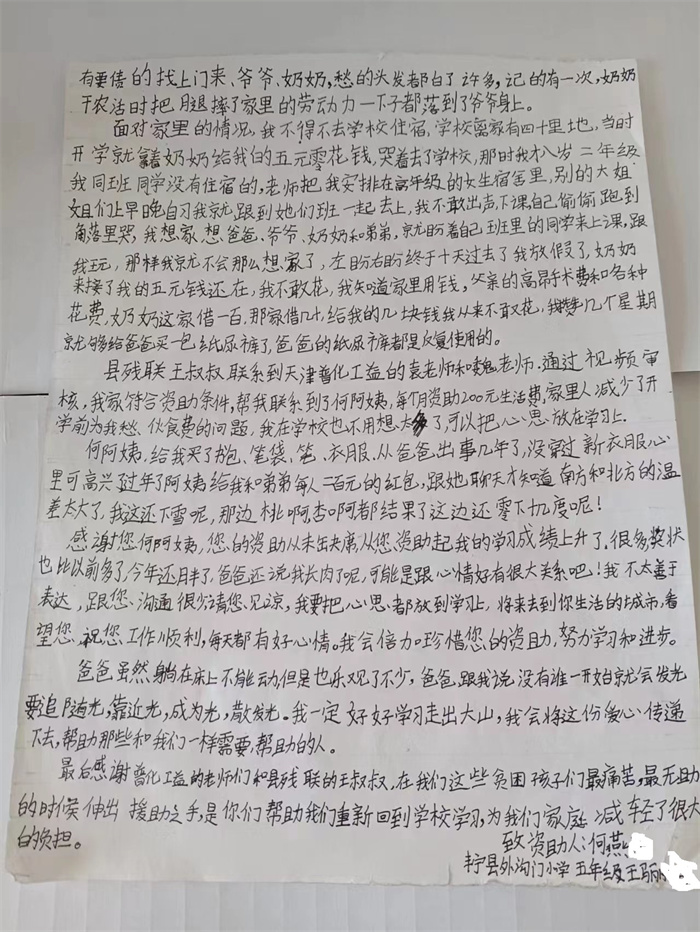 有要债的找上门来、爷爷、奶奶,愁的头发都白了许多,记的有一次,奶奶
干农活时把腿摔了家里的劳动力一下子都落到了爷爷身上。
面对家里的情况,我不得不去学校住宿,学校离家有四十里地,当时
开学就拿着奶奶给我的五元零花钱,哭着去了学校,那时我才八岁二年级
我同班同学没有住宿的,老师把我安排在高年级的女生宿舍里,别的大姐
姐们上早晚自习我就跟到她们班一起去上,我不敢出声,下课自己偷偷跑到
角落里哭,我想家想爸爸、爷爷、奶奶和弟弟,就盼着自己班里的同学来上课,跟
我玩,那样我就不会那么想家了,左盼右盼终于十天过去了我放假了,奶奶
来接了我的五元钱还在,我不敢花,我知道家里用钱。父亲的高昂手术费和各种
花费,奶奶这家借一百,那家借几十,给我的几块钱我从来不敢花,我攒几个星期
就够给爸爸买一包纸尿裤了,爸爸的纸尿裤都是反复使用的。
县残联王叔叔联系到天津普化工益的袁老师和老师.通过视频审
核,我家符合资助条件,帮我联系到了何阿姨,每个月资助200元生活费,家里人减少了开
学前为我愁伙食费的问题,我在学校也不用想太多了,可以把心思放在学习上.
何阿姨,给我买了书包、笔袋、笔、衣服.从爸爸出事几年了,没穿过新衣服心
里可高兴过年了阿姨给我和弟弟每人二百元的红包,跟她聊天才知道南方和北方的温
差太大了,我这还下雪呢,那边桃啊杏啊都结果了这边还零下九度呢!
感谢您何阿姨,您的资助从未缺席,从您资助起我的学习成绩上升了.很多奖状
也比以前多了,今年还月半了,爸爸还说我长肉了呢,可能是跟心情好有很大关系吧!我不太善于
表达,跟您沟通很少请您见谅,我要把心思都放到学习上,将来去到你生活的城市,看
望您.祝您工作顺利,每天都有好心情。我会倍加珍惜您的资助,努力学习和进步。
爸爸虽然躺在床上不能动,但是也乐观了不少,爸爸跟我说没有谁一开始就会发光
要追随光,靠近光,成为光,散发光。我一定好好学习走出大山,我会将这份爱心传递
下去,帮助那些和我们一样需要帮助的人。
最后感谢普化工益的老师们和县残联的王叔叔,在我们这些贫困孩子们最痛苦,最无助
的时候伸出援助之手,是你们帮助我们重新回到学校学习,为我们家庭减轻了很大
的负担。
致资助人:何燕
丰宁县外沟门小学五年级王丽